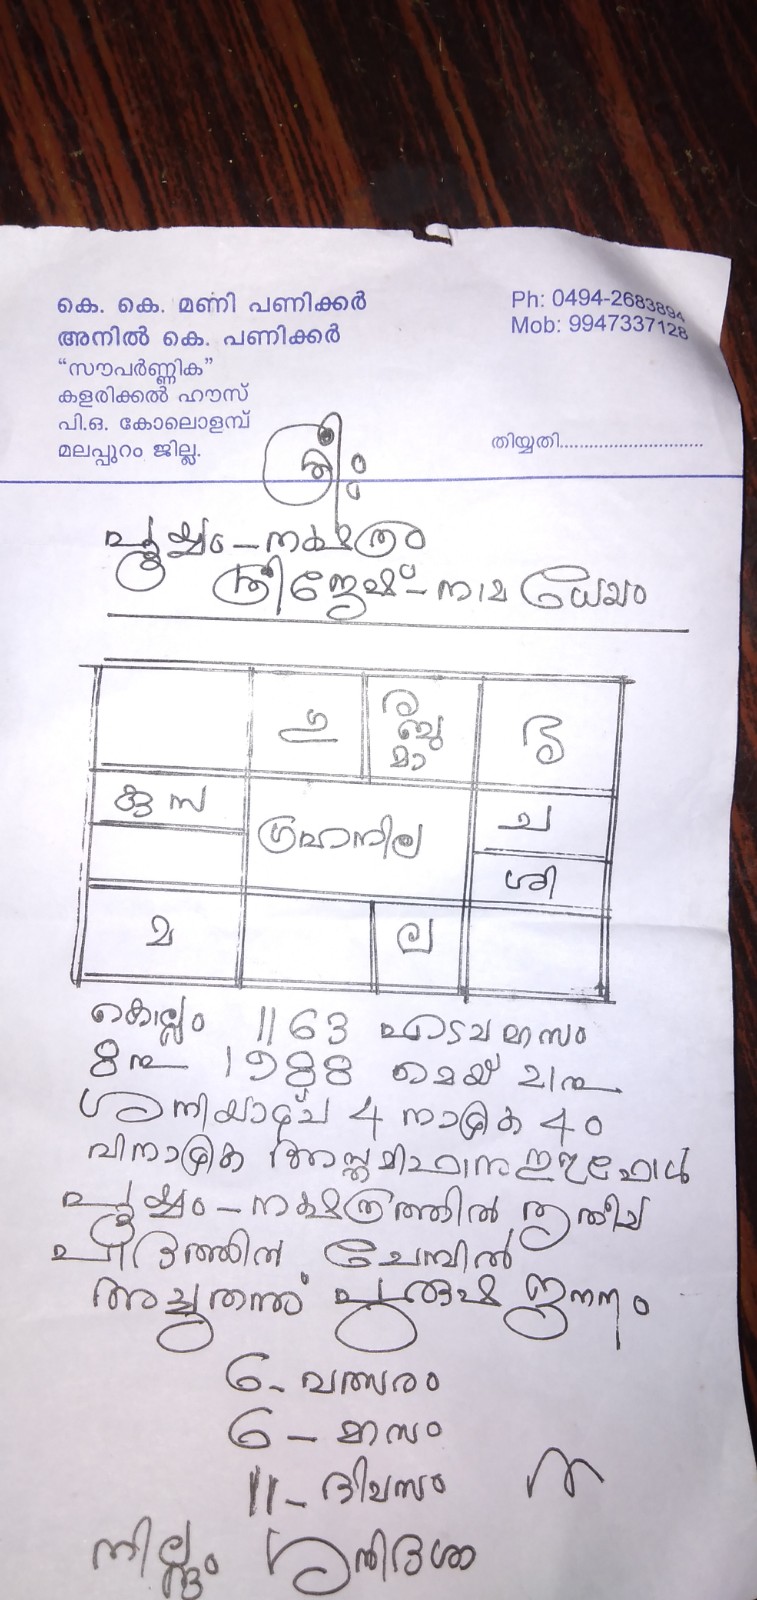 കെ. കെ. മണി പണിക്കർ
അനിൽ കെ. പണിക്കർ
"സൗപർണ്ണിക"
കളരിക്കൽ ഹൗസ്
പി.ഒ. കോലൊളമ്പ്
മലപ്പുറം ജില്ല.
Ph: 0494-2683894
Mob: 9947337128
തിയ്യതി............................
ശ്രീഃ
പൂയ്യം - നക്ഷത്രം
ശ്രീജേഷ് - നാമധേയം
ഗു
ര
ബു
മാ
കു സ
ഗ്രഹനില
ച
ശി
മ
ല
കൊല്ലം 1163 എടവമാസം
8നു 1988 മെയ് 21നു
ശനിയാഴ്ച 4 നാഴിക 40
വിനാഴിക അസ്തമിപ്പാനുള്ളപ്പോൾ
പൂയ്യം - നക്ഷത്രത്തിൽ തൃതീയ
പാദത്തിൽ ചേമ്പിൽ
അച്ചുതന്ന് പുരുഷ ജനനം
6 - വത്സരം
6 - മാസം
11 - ദിവസം
നില്പും ശനിദശ